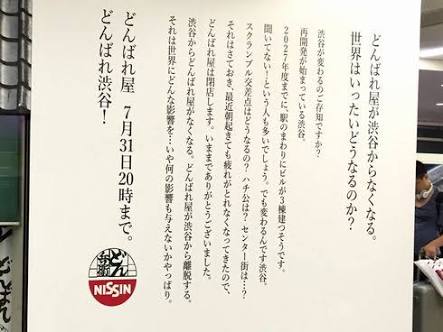 どんばれ屋が渋谷からなくなる。
世界はいったいどうなるのか?
渋谷が変わるのご存知ですか?
再開発が始まっている渋谷。
2027年度までに、駅のまわりにビルが3棟建つそうです。
聞いてない!という人も多いでしょう。でも変わるんです渋谷。
スクランブル交差点はどうなるの?ハチ公は?センター街は…?
それはさておき、最近朝起きても疲れがとれなくなってきたので、
どんばれ屋は閉店します。いままでありがとうございました。
渋谷からどんばれ屋がなくなる。どんばれ屋が渋谷から離脱する。
それは世界にどんな影響を…いや何の影響も与えないかやっぱり。
どんばれ屋 7月31日20時まで。
どんばれ渋谷!
どん兵衛
NISSIN